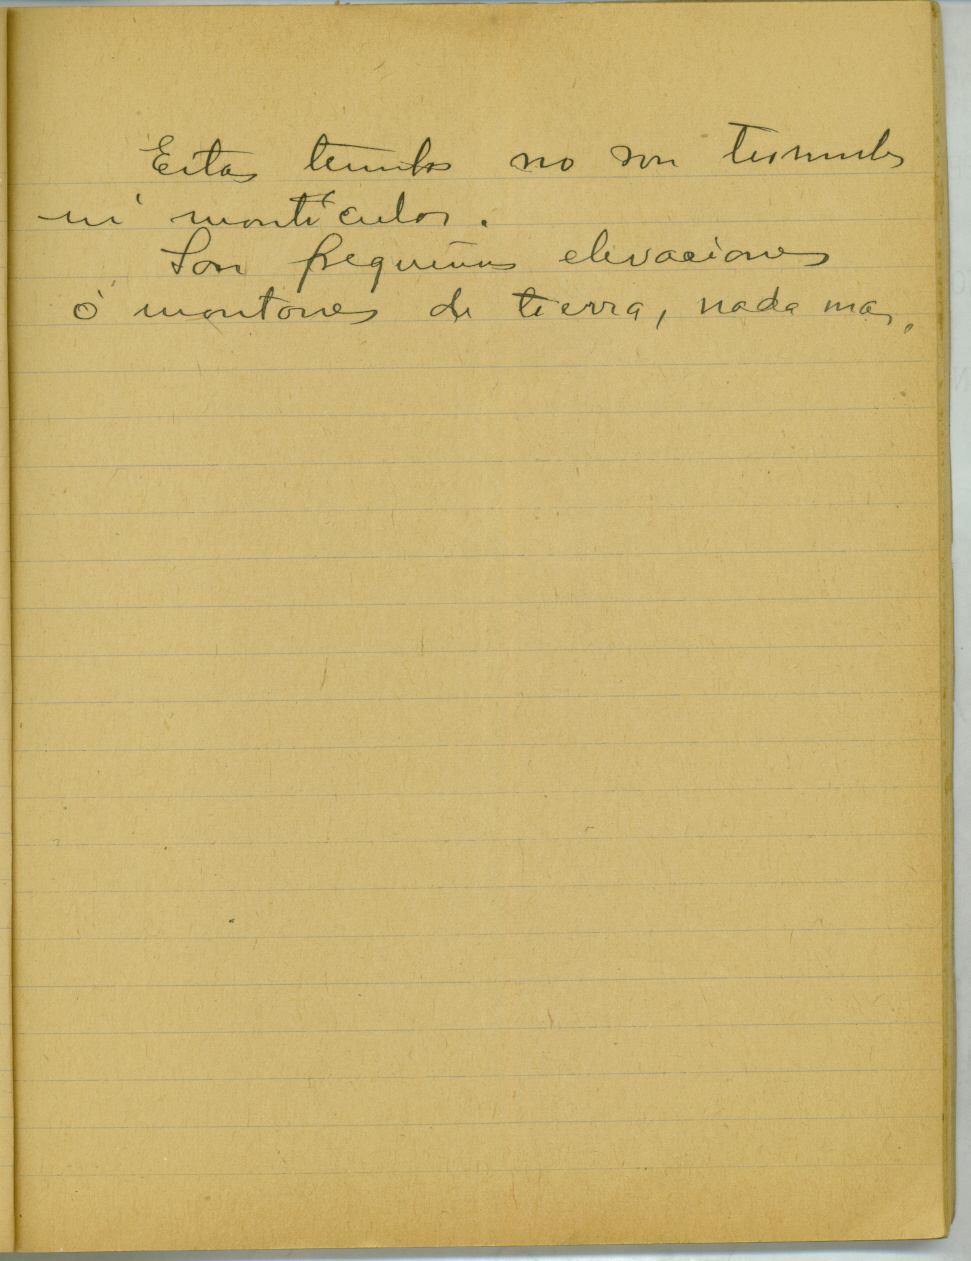 Estas tumbas no son túmulos
ni montículos.
Son pequeñas elevaciones
ó montones de tierra, nada mas.